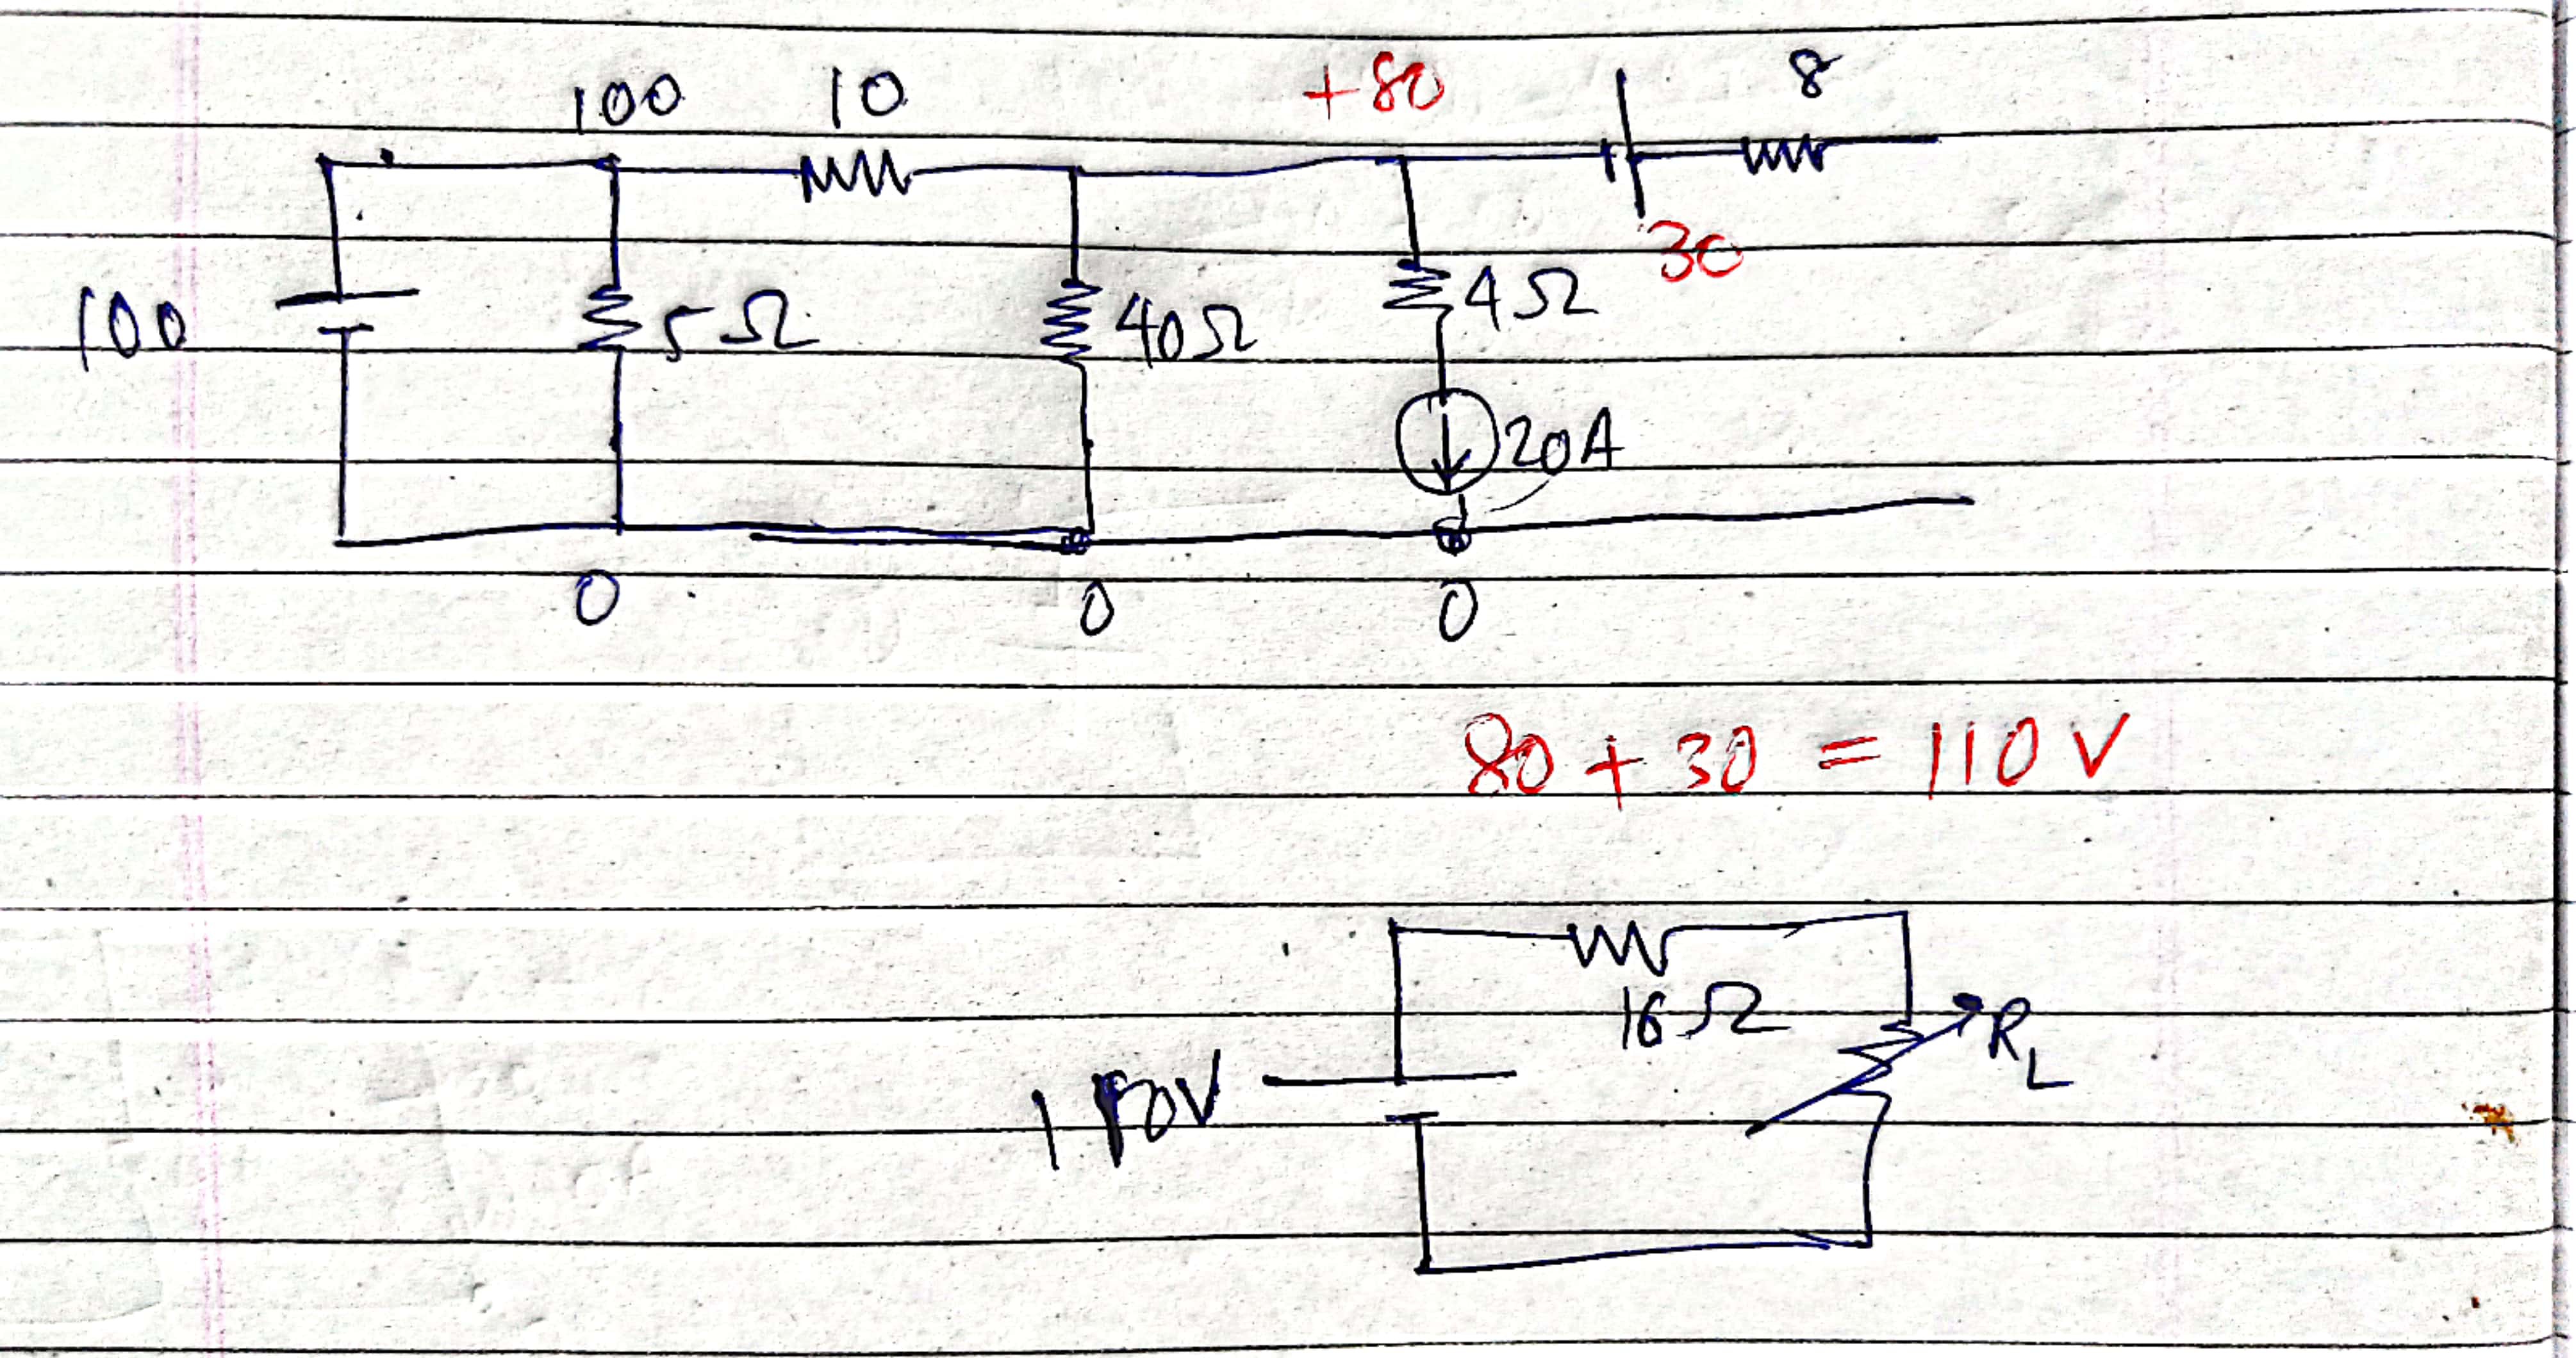 100 10 +80 8
30
100 5Ω 40Ω 4Ω
20A
0 0 0
80 + 30 = 110 V
16Ω R_L
110V